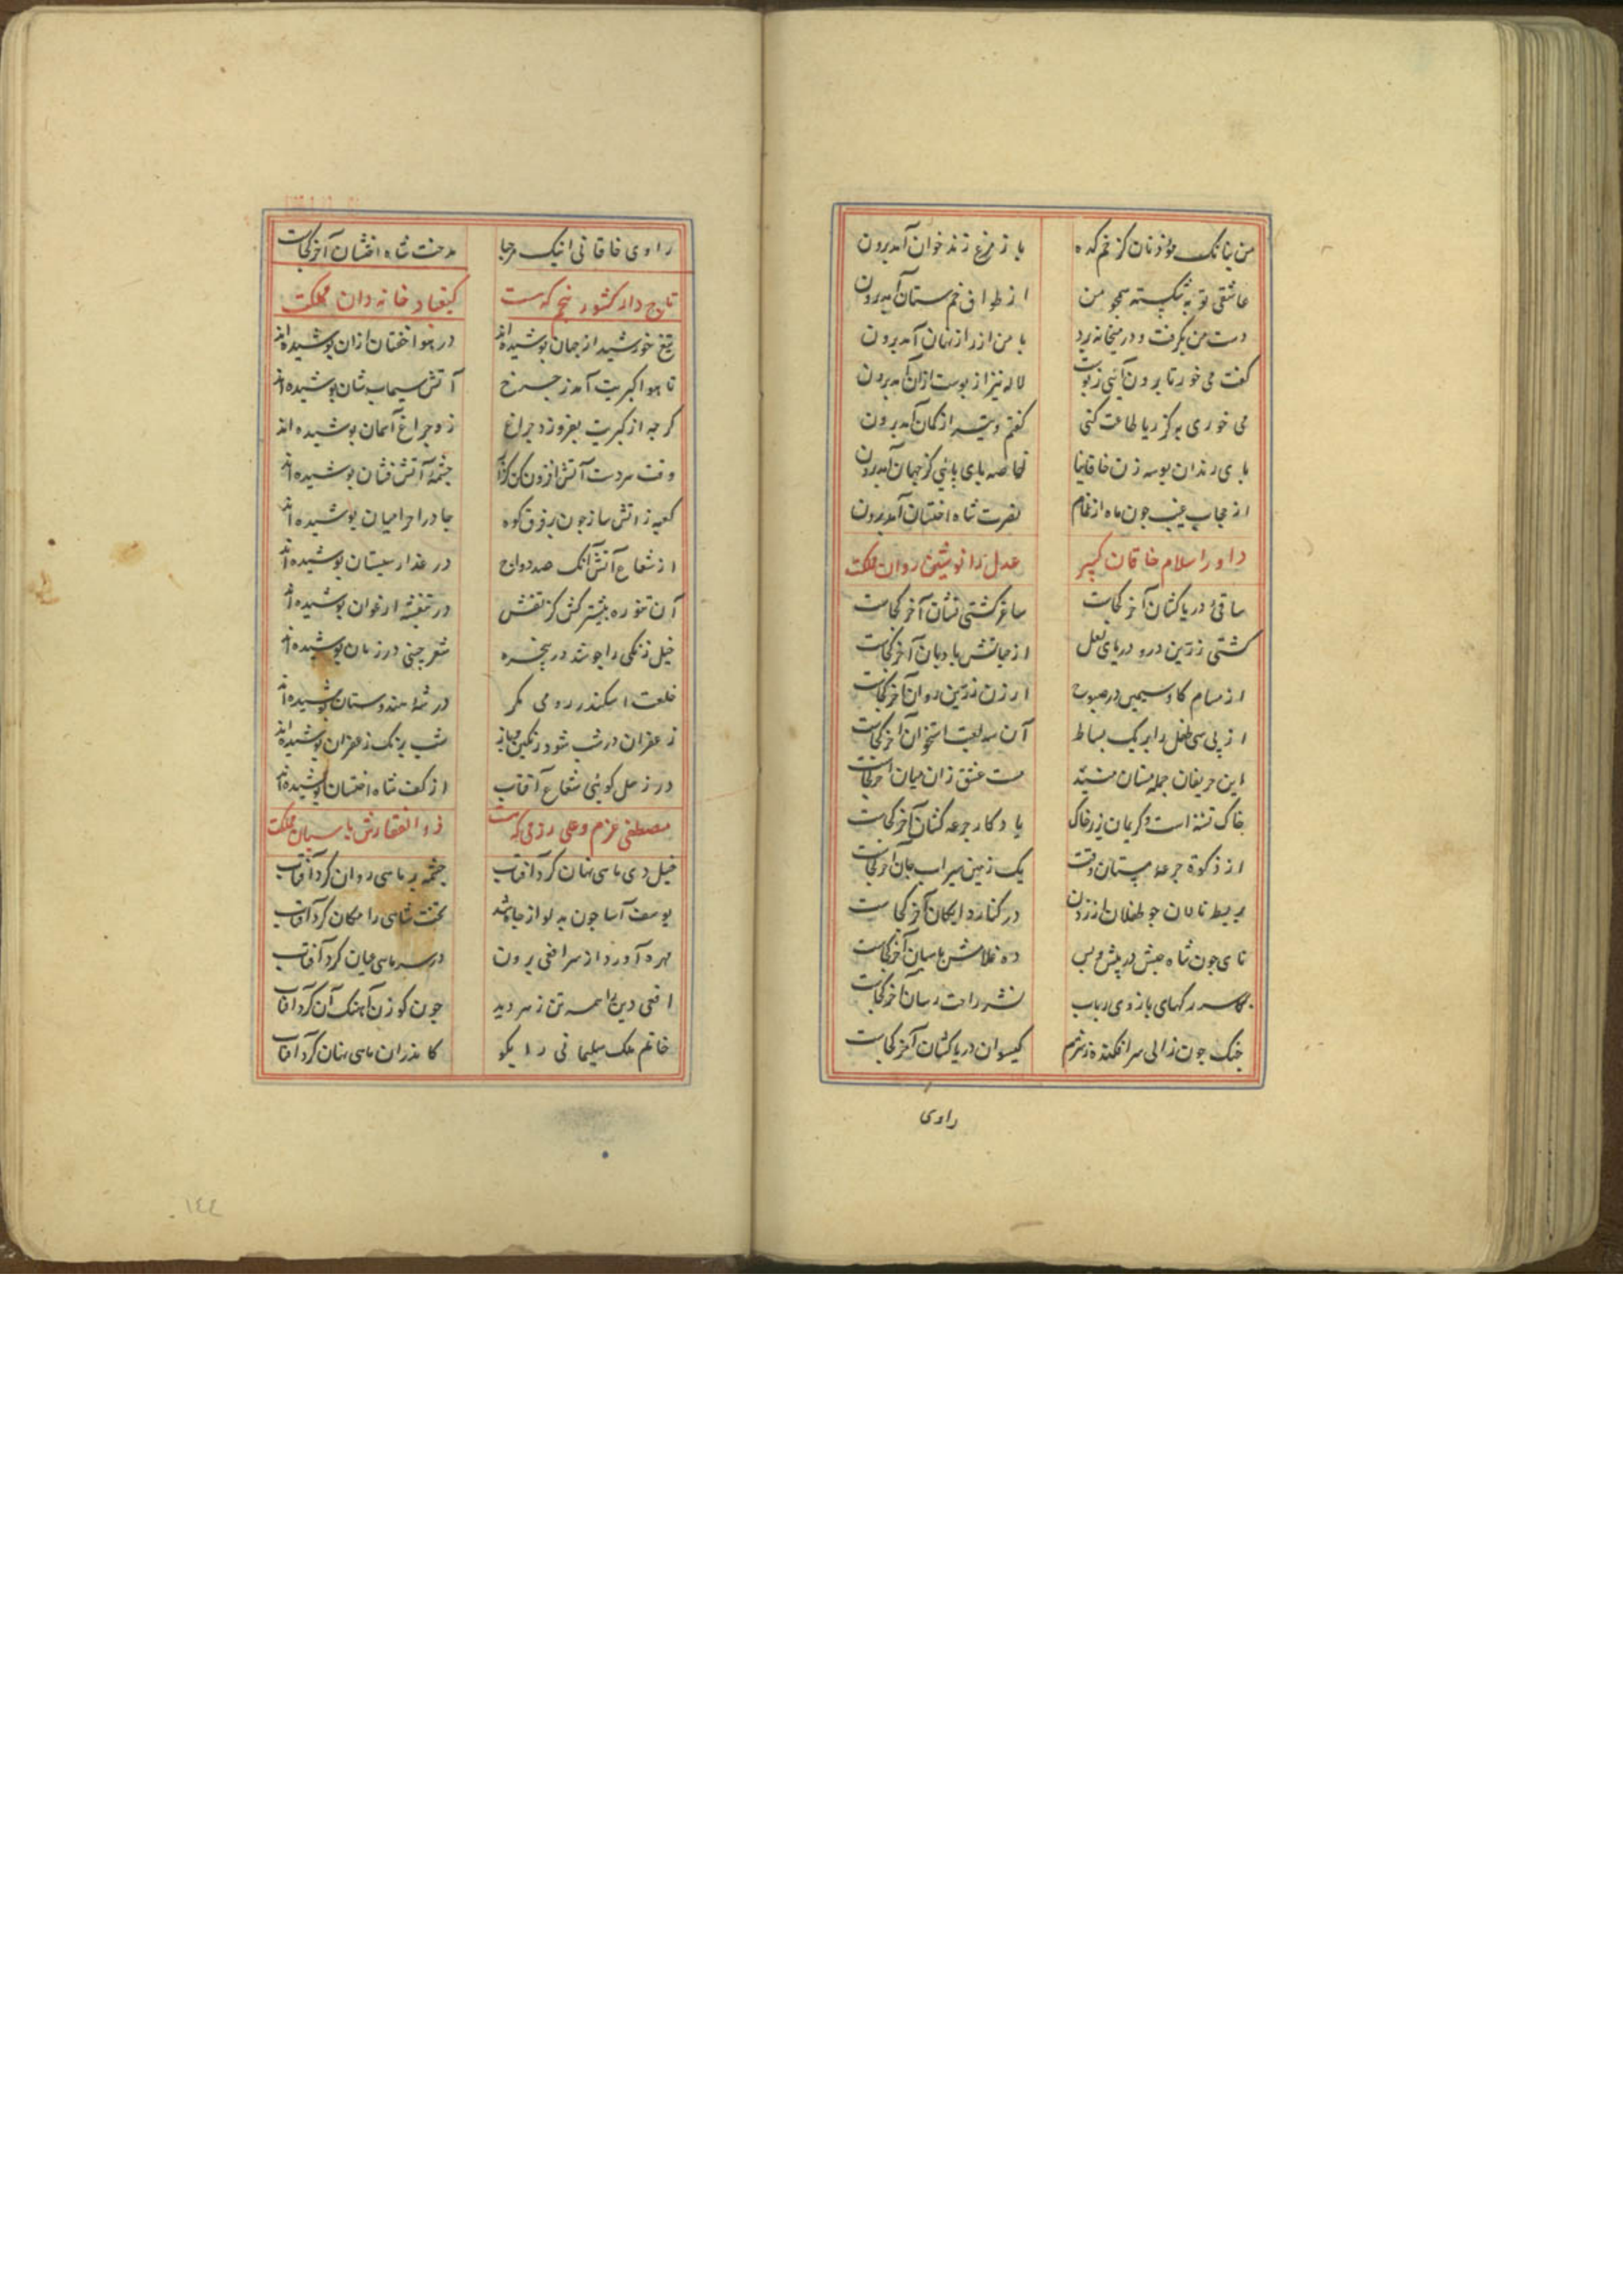 من ببانک مؤذنان کز خم کده بانک مرغ زند خوان آمد برون
عاشقی توبه شکسته همچو من از طواف خم ستان آمد برون
دست من بگرفت و در میخانه برد با من از راز نهان آمد برون
گفت می خور تا برون آئی ز پوست لاله نیز از پوست ازان آمد برون
می خوری به کز ریا طاعت کنی گفتم و تیر از کمان آمد برون
پای رندان بوسه زن خاقانیا خاصه پای کز جهان آمد برون
از حجاب غیب چون ماه از غمام نصرت شاه اخستان آمد برون
داور اسلام خاقان کبیر عدل را نوشین روان مملکت
ساقی دریا کشان آخر کجاست ساغر کشتی نشان آخر کجاست
کشتی زرین درو دریای لعل از حبابش بادبان آخر کجاست
از مسام کاو سیمین در صبوح ارزن زرین روان آخر کجاست
از پی سی طفل را بر یک بساط آن سه لعبت استخوان آخر کجاست
این حریفان جمله مستان میند مست عشق زان میان آخر کجاست
خاک تشنه است و کریمان زیر خاک یادکار جرعه کشان آخر کجاست
از زکوة جرعه مستان وقت یک زمین سیراب جان آخر کجاست
بربط نالان چو طفلان از زدن در کنار دایکان آخر کجاست
نای چون شاه حبش در پیش و پس ده غلامش پاسبان آخر کجاست
بر سر رکهای بازوی رباب نشتر راحت رسان آخر کجاست
چنک چون زالی سرافکنده ز شرم کیسوان در پا کشان آخر کجاست
راوی
راوی خاقانی اینک مرحبا مدحت شاه اخستان آخر کجاست
تاج دار کشور پنجم که هست کیقباد خاندان مملکت
تیغ خورشید از جهان پوشیده‌اند در هوا خفتان ازان پوشیده‌اند
تا هوا کبریت آمد ز چرخ آتش سیماب‌شان پوشیده‌اند
کرچه از کبریت بفروزد چراغ زو چراغ آسمان پوشیده‌اند
وقت سردست آتش افزون کن که چشمه آتش فشان پوشیده‌اند
کعبه ز آتش ساز چون بر فرق کوه چادر احرامیان پوشیده‌اند
از شعاع آتش آنک صد دواج در عذار سیستان پوشیده‌اند
آن تنوره پیشتر کش کز تفش در بنفشه ارغوان پوشیده‌اند
خیل زنکی را چو شد در پنجره شعر چینی در زمان پوشیده‌اند
خلعت اسکندر رومی مکر در شه هندوستان پوشیده‌اند
زعفران در شب شود رنگین شب برنک زعفران پوشیده‌اند
در زحل کوئی شعاع آفتاب از کف شاه اخستان پوشیده‌اند
مصطفی عزم و علی رزمی که هست ذوالفقارش پاسبان مملکت
خیل دی ماهی نهان کرد آفتاب چشمه بر ماهی روان کرد آفتاب
یوسف آسا چون به دلو از چاه شد تخت شاهی را مکان کرد آفتاب
مهره آورد از سر افعی برون در سر ماهی عیان کرد آفتاب
افعی دین را همه تن زهر دید چون کوزن آهنک آن کرد آفتاب
خاتم ملک سلیمانی را بکو کاندران ماهی نهان کرد آفتاب
١٤٤